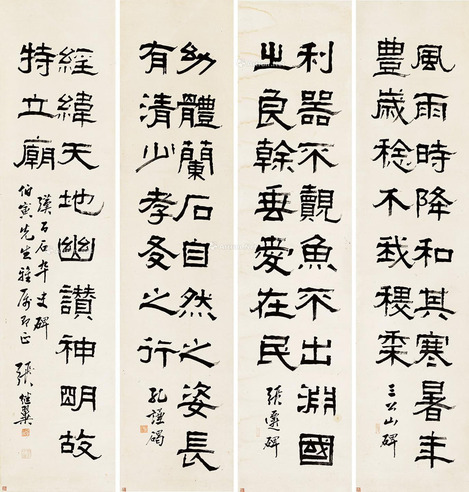 風雨時降和其寒暑年
豊歲稔不我稷黍
三公山碑
利器不覿魚不出淵國
之良幹垂愛在民
張遷碑
幼體蘭石自然之姿長
有清少孝友之行
孔謙碣
經緯天地幽讚神明故
特立廟
漢百石卒史碑
伯寅先生雅屬即正
張